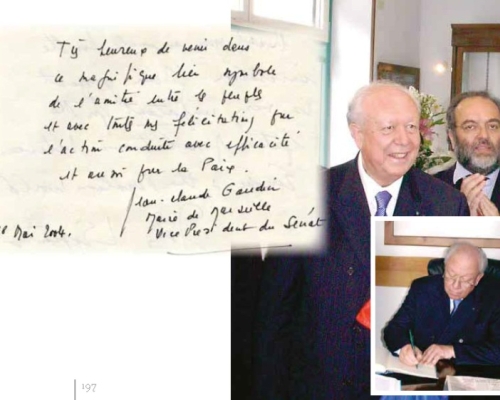 Très heureux de venir dans
ce magnifique lieu symbole
de l'amitié entre les peuples
et avec toutes mes félicitations pour
l'action conduite avec efficacité
et aussi pour la Paix.
Jean-Claude Gaudin
Maire de Marseille
Vice Président du Sénat
Mai 2004.
197